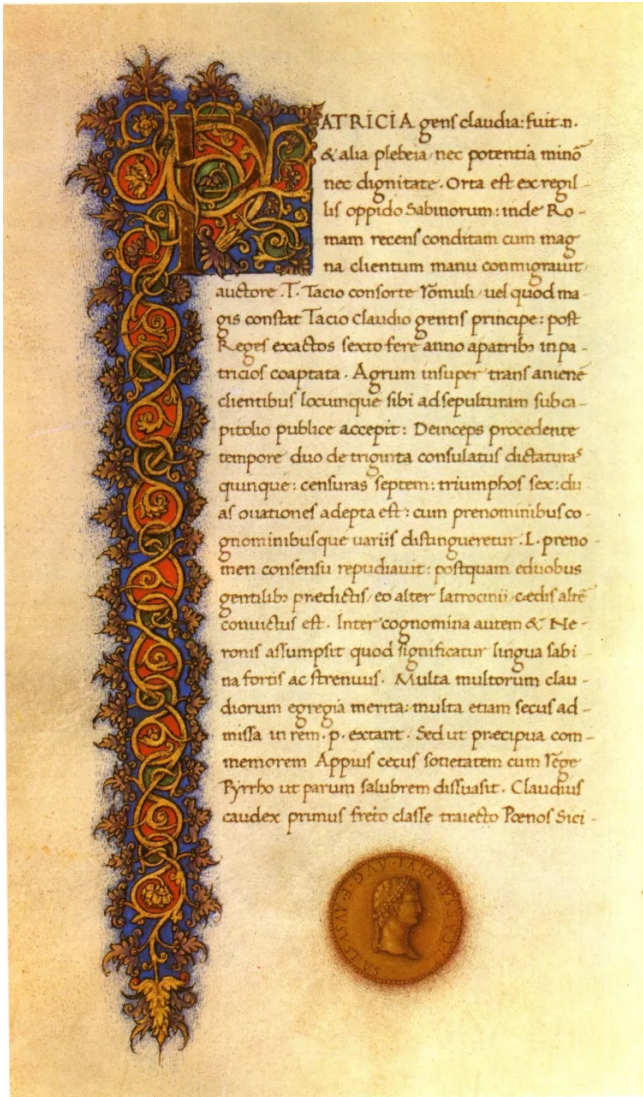 PATRICIA gens claudia: fuit .n.
& alia plebeia nec potentia minō
nec dignitate. Orta est ex regil-
lis oppido Sabinorum: inde Ro-
mam recens conditam cum mag
na clientum manu conmigrauit
auctore .T. Tacio consorte Romuli, uel quod ma-
gis constat Tacio Claudio gentis principe: post
Reges exactos sexto fere anno apatribꝫ in pa-
tricios coaptata. Agrum insuper trans anienē
clientibus locumque sibi ad sepulturam sub ca-
pitolio publice accepit: Deinceps procedente
tempore duo de triginta consulatus dictaturas
quinque: censuras septem: triumphos sex: du
as ouationes adepta est: cum prenominibus co-
gnominibusque uariis distingueretur .L. preno
men consensu repudiauit: postquam eduobus
gentilibꝫ prædictis, eo alter latrocinii, cædis altē
conuictus est. Inter cognomina autem & Ne-
ronis assumpsit quod significatur lingua sabi
na fortis ac strenuus. Multa multorum clau-
diorum egregia merita: multa etiam secus ad-
missa in rem .p. extant. Sed ut præcipua com-
memorem Appius cecus sotietatem cum rege
Pyrrho ut parum salubrem dissuasit. Claudius
caudex primus freto classe traiecto Pœnos Sici-